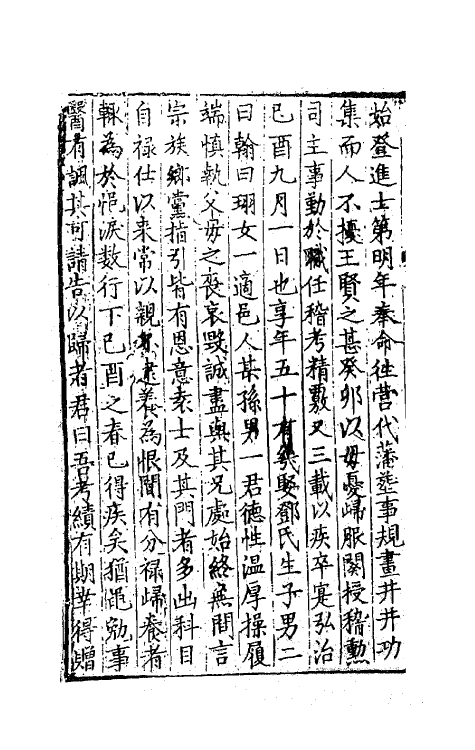 始登進士第明年奉命徃营代藩塟事規畫井井功
集而人不擾王賢之甚癸卯以毋憂歸服闋授稽勲
司主事勤於職任稽考精覈又三載以疾卒寔弘治
己酉九月一日也享年五十有幾娶鄧氏生子男二
曰翰曰珝女一適邑人某孫男一君德性温厚操履
端慎執父毋之喪哀毀誠盡與其兄處始終無間言
宗族鄉黨指引皆有恩意来士及其門者多出科目
自禄仕以来常以親不逮養為恨間有分禄歸養者
輒為於悒淚数行下己酉之春已得疾矣猶黽勉事
醫有諷其可請告以歸者君曰吾考績有期幸得贈